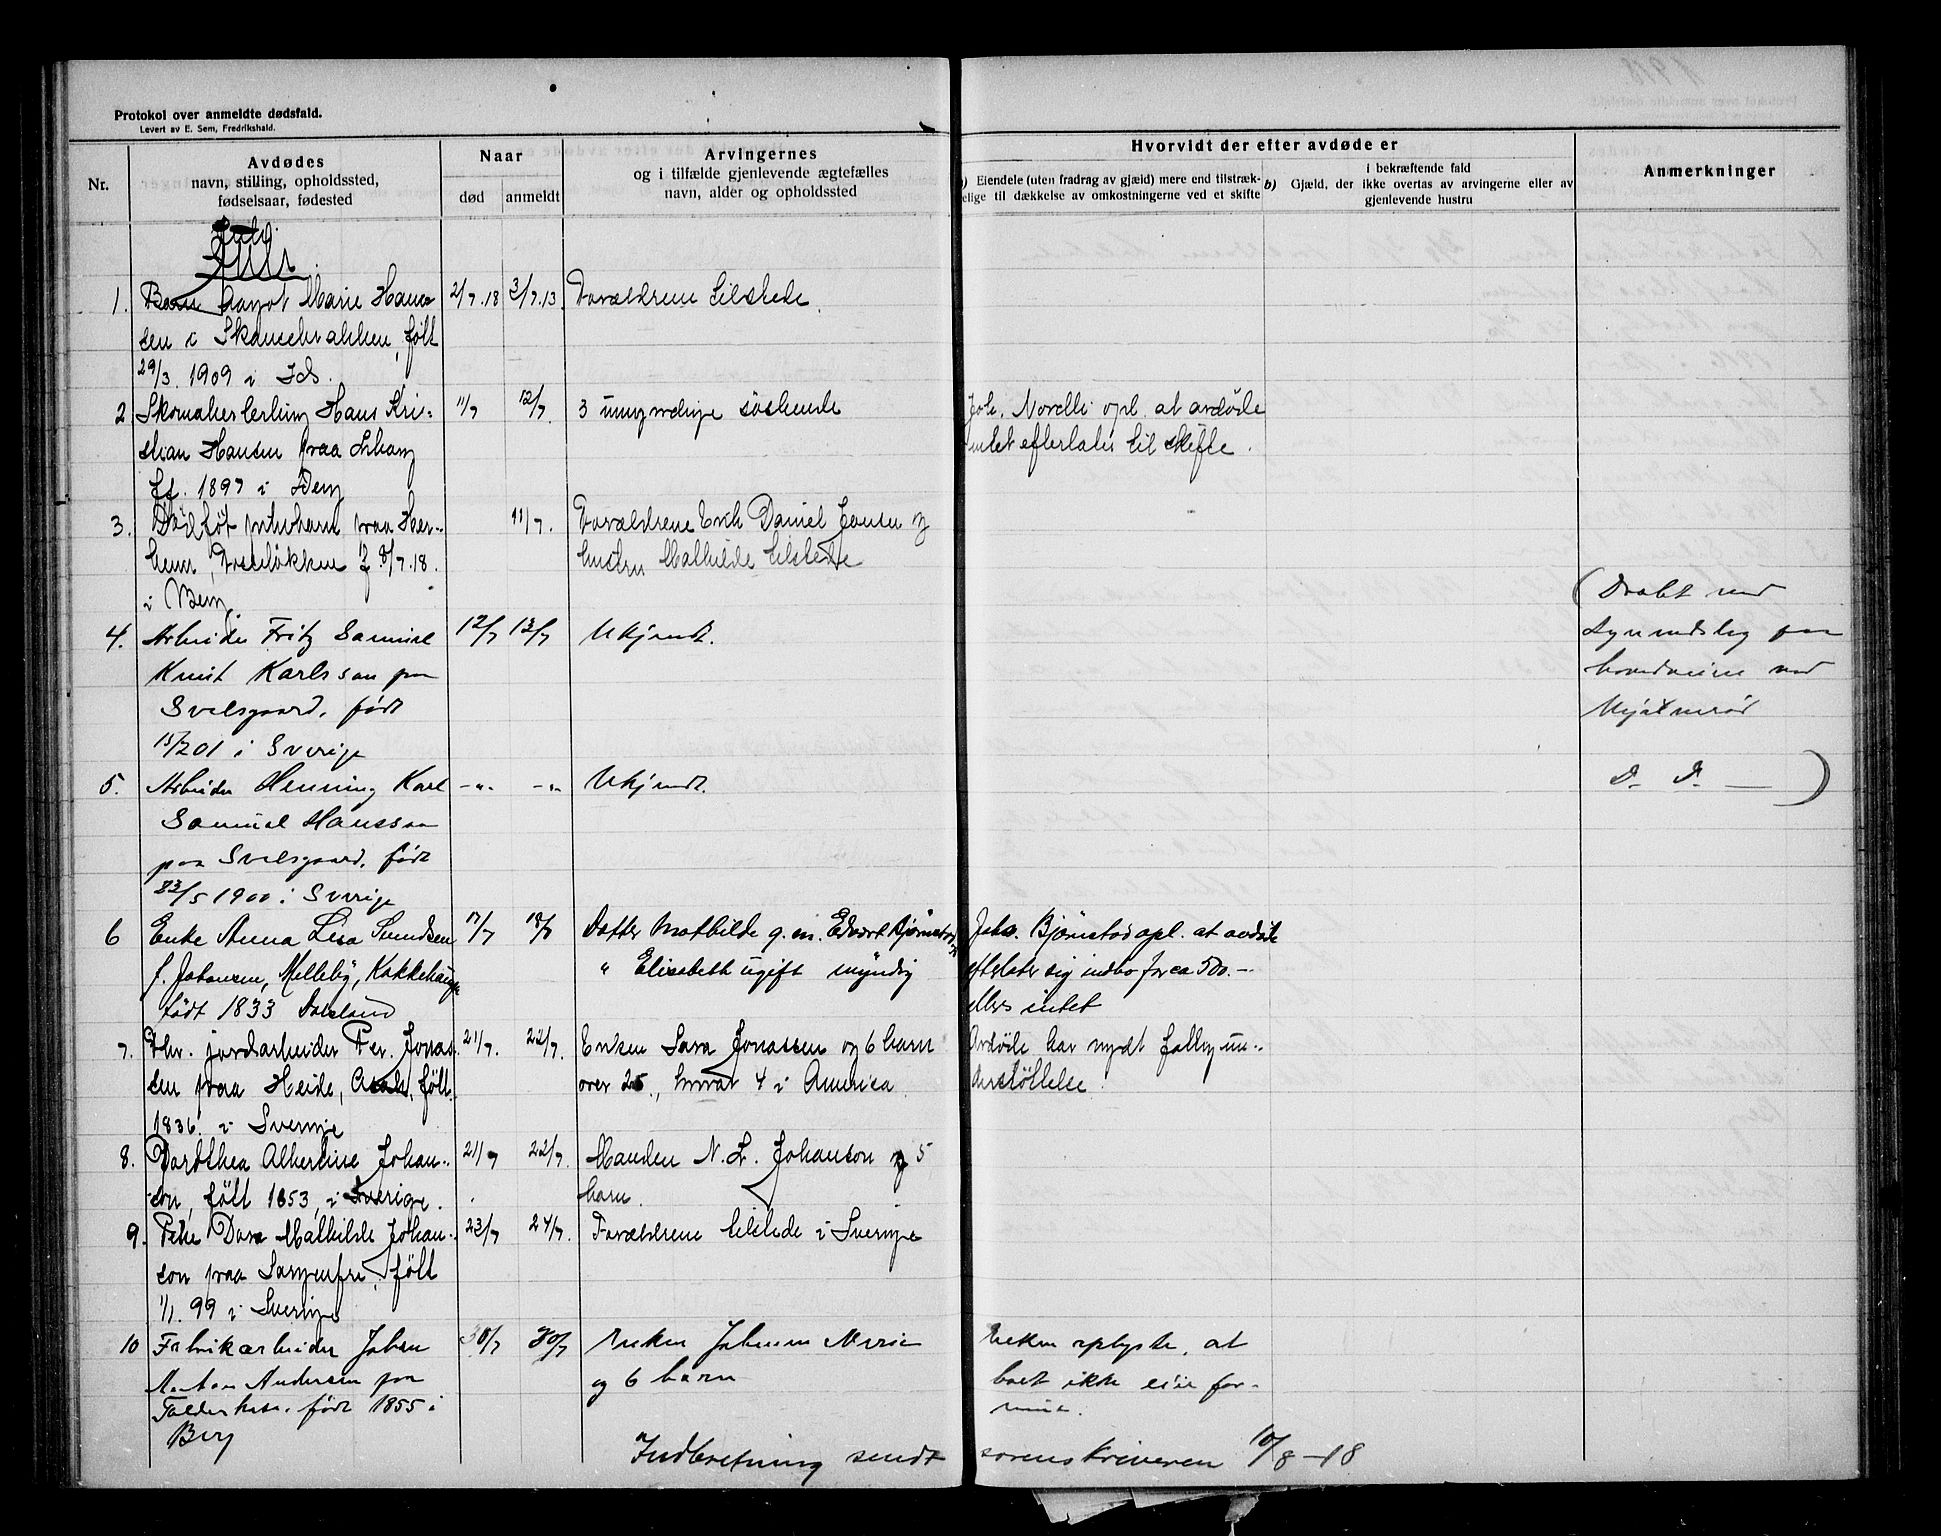 Protokol over anmeldte dødsfald.
Levert av E. Sem, Fredrikshald.
Nr.
Avdødes
navn, stilling, opholdssted,
fødselsaar, fødested
Naar
død
anmeldt
Arvingernes
og i tilfælde gjenlevende ægtefælles
navn, alder og opholdssted
Hvorvidt der efter avdøde er
) Eiendele (uten fradrag av gjæld) mere end tilstræk-
elige til dækkelse av omkostningerne ved et skifte
i bekræftende fald
b) Gjæld, der ikke overtas av arvingerne eller av
gjenlevende hustru
Anmerkninger
Juli
1. Barn Aagot Marie Han-
sen i Skansebakken, født
29/3. 1909 i Ids.
2/7.18 3/7.13 Forældrene tilstede.
2 Skomakerlerling Hans Kri-
stian Hansen paa
1897 i Berg
11/7 12/7. 3 umyndige søskende
Joh. Norelli opl. at avdøde
intet efterlater til skifte.
3. Dødfødt pikebarn paa Her-
f 8/7.18.
i Berg.
11/7. Forældrene Erik Daniel Jensen og
hustru Mathilde tilstede
4. Arbeider Fritz Samuel
Knut Karlsson paa
Svelsgaard, født
15/2 01 i Sverige
12/7 13/7 Ukjendt.
(Dræbt ved
Lynnedslag paa
hovedveien ved
5. Arbeider Henning Karl
Samuel Hansson
paa Svelsgaard, født
23/5 1900 i Sverige
-"- -"- Ukjendt.
D. D. — )
6 Enke Anna Lisa Svendsen
f. Johansen, Melleby, Kokkehaugen
født 1833 Dalsland
17/7 18/7 Datter Mathilde g. m. Edvart Bjørnstad
" Elisabeth ugift myndig
Johs. Bjørnstad opl. at avdøde
efterlater sig indbo for ca 500.-
ellers intet
7. Fhv. jordarbeider Per. Jonas-
sen paa Heide, Asak, født
1836 i Sverige
21/7. 22/7. Enken Sara Jonassen og 6 barn
over 25, hvorav 4 i America
Avdøde har nydt fattigun-
derstøttelse.
8. Dorothea Albertine Johan-
son, født 1853, i Sverige.
21/7 22/7. Manden N. L. Johanson og 5
barn.
9. Pike Dora Mathilde Johan-
son paa Sorgenfri, født
1/1. 99 i Sverige
23/7 24/7. Forældrene tilstede i Sverige
10 Fabrikarbeider Johan
Anton Andersen paa
født 1855 i
Berg
30/7 30/7 Enken Johanne Marie
og 6 barn
Enken oplyste, at
boet ikke eier for-
mue.
Indberetning sendt sorenskriveren 10/8 -18